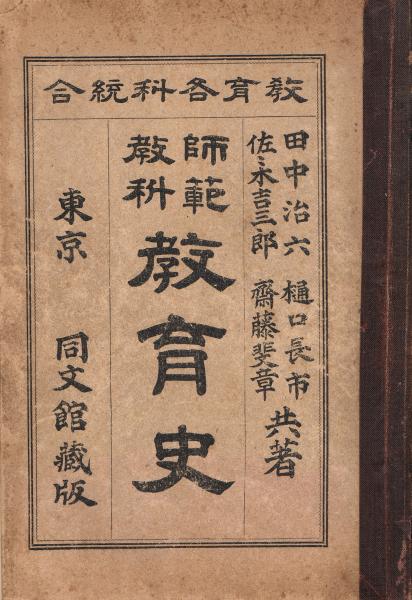 教育各科統合
田中治六
佐々木吉三郎
樋口長市
齋藤斐章
共著
師範
教科
教育史
東京　同文館藏版